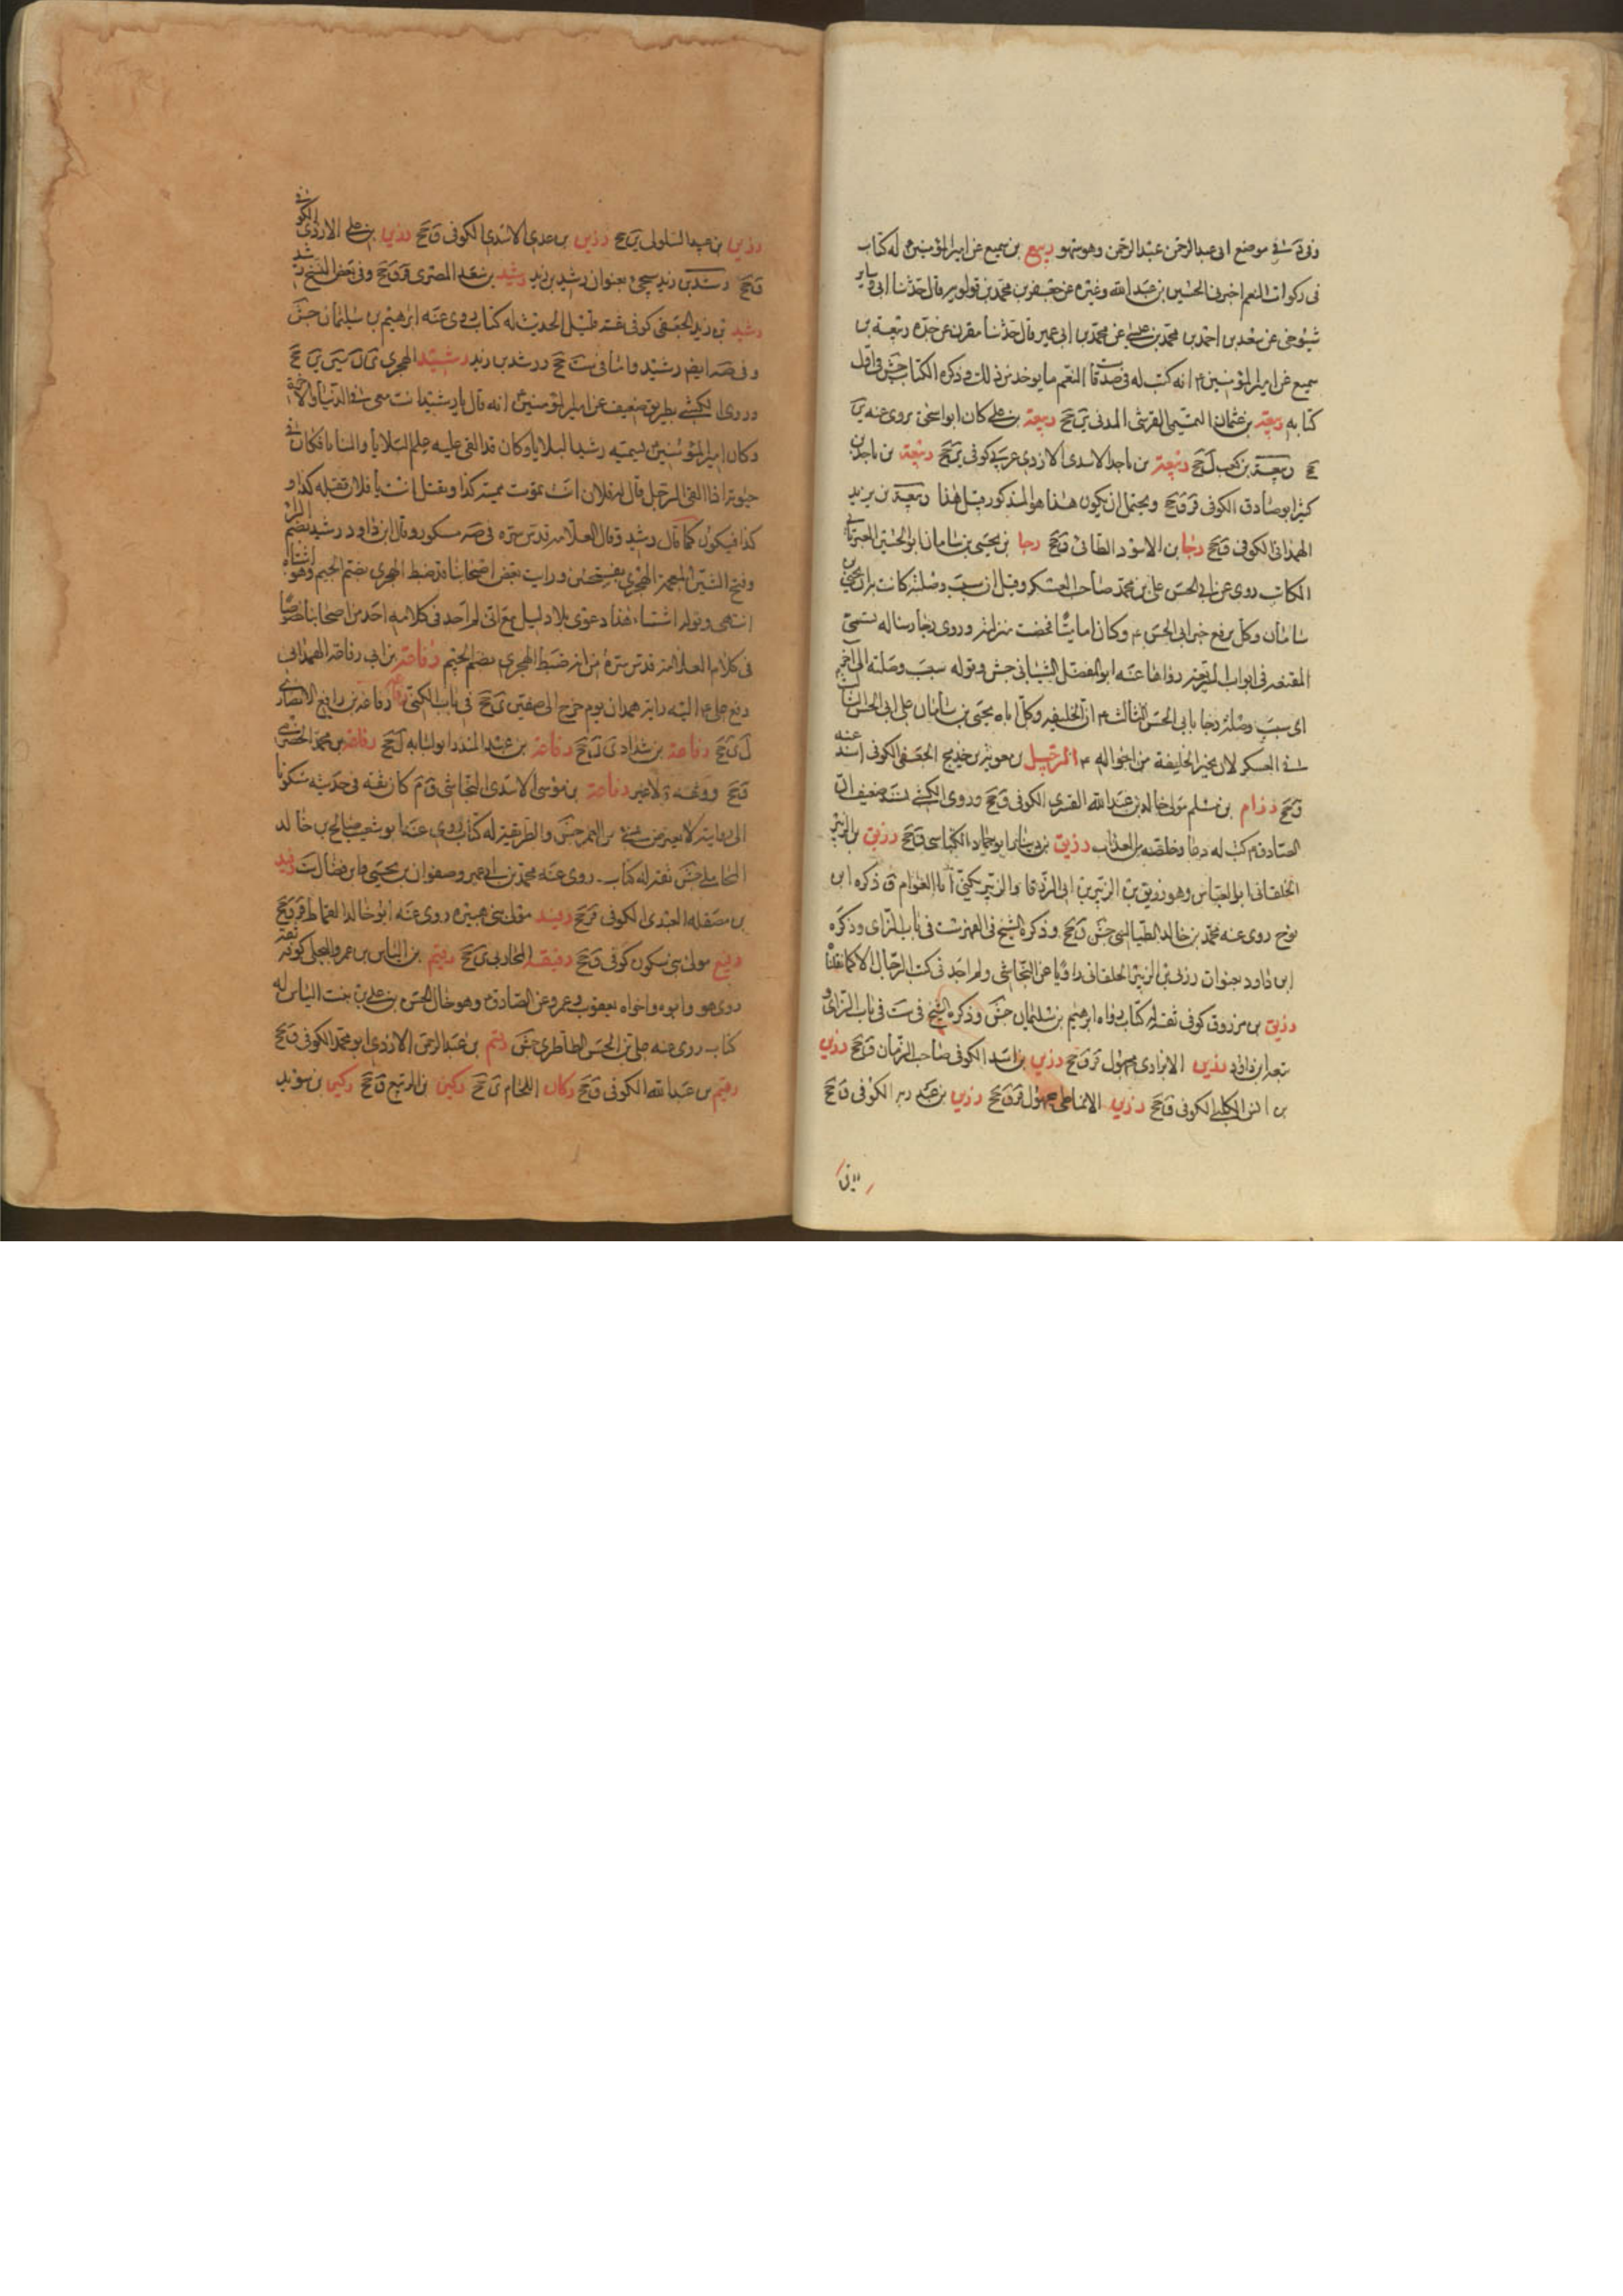 وفى موضع ابى عبد الرحمن عبد الرحمن وهو سهو ربيع بن سميع عن امير المؤمنين له كتاب
فى زكوات النعم اخبرنى الحسين بن عبد الله وغيره عن جعفر بن محمد بن قولويه قال حدثنا ابى وساير
شيوخى عن سعد بن احمد بن محمد بن عيسى عن محمد بن ابى عمير قال حدثنا مقرن عن جده ربيعة بن
سميع عن امير المؤمنين ع انه كتب له فى صدقات النعم ما يوخذ من ذلك وذكر الكتاب جش واول
كتابه ربيعة بن عثمان التيمى القرشى المدنى ين جخ ربيعة بن على كان ابو اسحق يروى عنه ى
جخ ربيعة بن كعب ل جخ ربيعة بن ناجد الاسدى الازدى عربى كوفى ى جخ ربيعة بن ناجد بن
كثير ابو صادق الكوفى قر ق جخ ويحتمل ان يكون هذا هو المذكور قبل هذا ربيعة بن يزيد
الهمدانى الكوفى ق جخ رجا بن الاسود الطائى ق جخ رجا بن يحيى بن سامان ابو الحسين العبرتائى
الكاتب روى عن ابى الحسن على بن محمد صاحب العسكر وقيل ان سبب وصلته كانت به ان يحيى بن
سامان وكل برفع خبر ابى الحسن ع وكان اماميا فحضت منزلته وروى رجا رسالة تسمى
المقنعة فى ابواب الشريعة رواها عنه ابو المفضل الشيبانى جش وقوله سبب وصلته الى آخره
اى سبب وصلة رجا بابى الحسن الثالث ع ان الخليفة وكل اباه يحيى بن سامان على ابى الحسن
فى العسكر لان يخبر الخليفة من احواله ع الرحيل بن معوية بن خديج الجعفى الكوفى اسند عنه
ق جخ رزام بن مسلم مولى خالد بن عبد الله القسرى الكوفى ق جخ وروى الكشى بسند ضعيف ان
الصادق ع كتب له دعا وخلصه من العذاب رزيق بن دينار ابو حماد الكناسى ق جخ رزيق بن الزبير
الخلقانى ابو العباس وهو رزيق بن الزبير بن ابى الزرقا والزبير يكنى ابا العوام ق ذكره ابن
نوح روى عنه محمد بن خالد الطيالسى جش ق جخ وذكره الشيخ فى الفهرست فى باب الزاى وذكره
ابن داود بعنوان رزين بن الزبير الخلقانى راويا عن النجاشى ولم اجد فى كتب الرجال الا كما نقلنا
رزيق بن مرزوق كوفى ثقة له كتاب رواه ابرهيم بن سليمان جش وذكره الشيخ فى ست فى باب الزاى و
تبعه ابن داود رزين الابزارى مجهول قر ق جخ رزين بن اسد الكوفى صاحب الرمان ق جخ رزين
بن انس الكلبى الكوفى ق جخ رزين الانماطى مجهول قر ق جخ رزين بن عبد ربه الكوفى ق جخ
رزين بن عبيد السلولى ين جخ رزين بن عدى الاسدى الكوفى ق جخ رزين بن على الازدى الكوفى
ق جخ رشد بن زيد سيجى بعنوان رشيد بن زيد رشد بن سعد المصرى قر ق جخ وفى بعض النسخ رشيد
رشيد بن زيد الجعفى كوفى ثقة قليل الحديث له كتاب روى عنه ابرهيم بن سليمان جش
وفى صه ايضا رشيد واما فى ست جخ در رشد بن زيد رشيد الهجرى ى ن سين ين جخ
وروى الكشى بطريق ضعيف عن امير المؤمنين ع انه قال يا رشيد انت معى فى الدنيا والآخرة
وكان امير المؤمنين يسميه رشيد البلايا وكان قد القى عليه علم البلايا والمنايا فكان فى
حيوته اذا لقى الرجل قال له فلان انت تموت بميتة كذا وتقتل انت يا فلان بقتلة كذا و
كذا فيكون كما قال رشيد وقال العلامة قدس سره فى صه مشكور وقال ابن داود رشيد بضم الراء
وفتح الشين المعجمة الهجرى بفتحتين ورايت بعض اصحابنا قد ضبط الهجرى بضم الجيم وهو اشتباه
انتهى وقوله اشتباه هذا دعوى بلا دليل مع انى لم اجد فى كلامه احد من اصحابنا خصوصا
فى كلام العلامة قدس سره من انه ضبط الهجرى بضم الجيم رفاعة بن ابى رفاعة الهمدانى
دفع على ع اليه راية همدان يوم خرج الى صفين ى جخ فى باب الكنى رفاعة بن رافع الانصارى
ل ى جخ رفاعة بن شداد ى ن جخ رفاعة بن عبد المنذر ابو لبابه ل جخ رفاعة بن محمد الحضرمى
ق جخ وثقه د لا غير رفاعة بن موسى الاسدى النخاس ق م كان ثقة فى حديثه مسكونا
الى روايته لا يعترض بشى من الغمز حسن الطريقة له كتاب روى عنه ابو شعيب صالح بن خالد
المحاملى جش ثقة له كتاب روى عنه محمد بن ابى عمير وصفوان بن يحيى وابن فضال ست رفيد
بن مصقله العبدى الكوفى قر جخ رفيد مولى بنى هبيرة روى عنه ابو خالد القماط قر ق جخ
رفيع مولى بنى سكون كوفى ق جخ رقبة المحاربى ى جخ رقيم بن الياس بن عمرو البجلى كوفى ثقة
روى هو وابوه واخواه يعقوب وعمرو عن الصادق ع وهو خال الحسن بن على بن بنت الياس له
كتاب روى عنه على بن الحسن الطاطرى جش رقيم بن عبد الرحمن الازدى ابو محمد الكوفى ق جخ
رقيم بن عبد الله الكوفى ق جخ ركان اللحام ى جخ ركين بن الربيع ق جخ ركين بن سويد